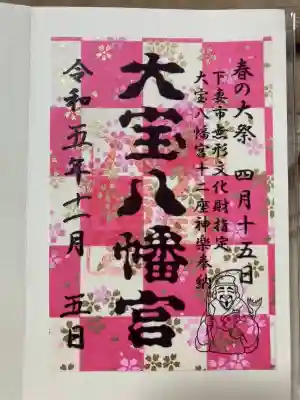 春の大祭 四月十五日
下妻市無形文化財指定
大宝八幡宮十二座神楽奉納
大宝八幡宮
令和五年十一月 五日